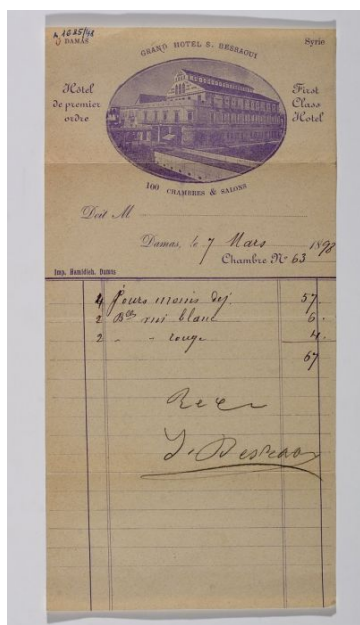 A 1025/41
DAMAS
GRAND HOTEL S. BESRAOUI
Syrie
Hôtel
de premier
ordre
First
Class
Hotel
100 CHAMBRES & SALONS
Doit M
Damas, le 7 Mars 1898
Chambre Nº 63
Imp. Hamidieh. Damas
4 jours moins dej. 57.
2 Bles vin blanc 6.
2 " - rouge 4.
67
S. Besraoui